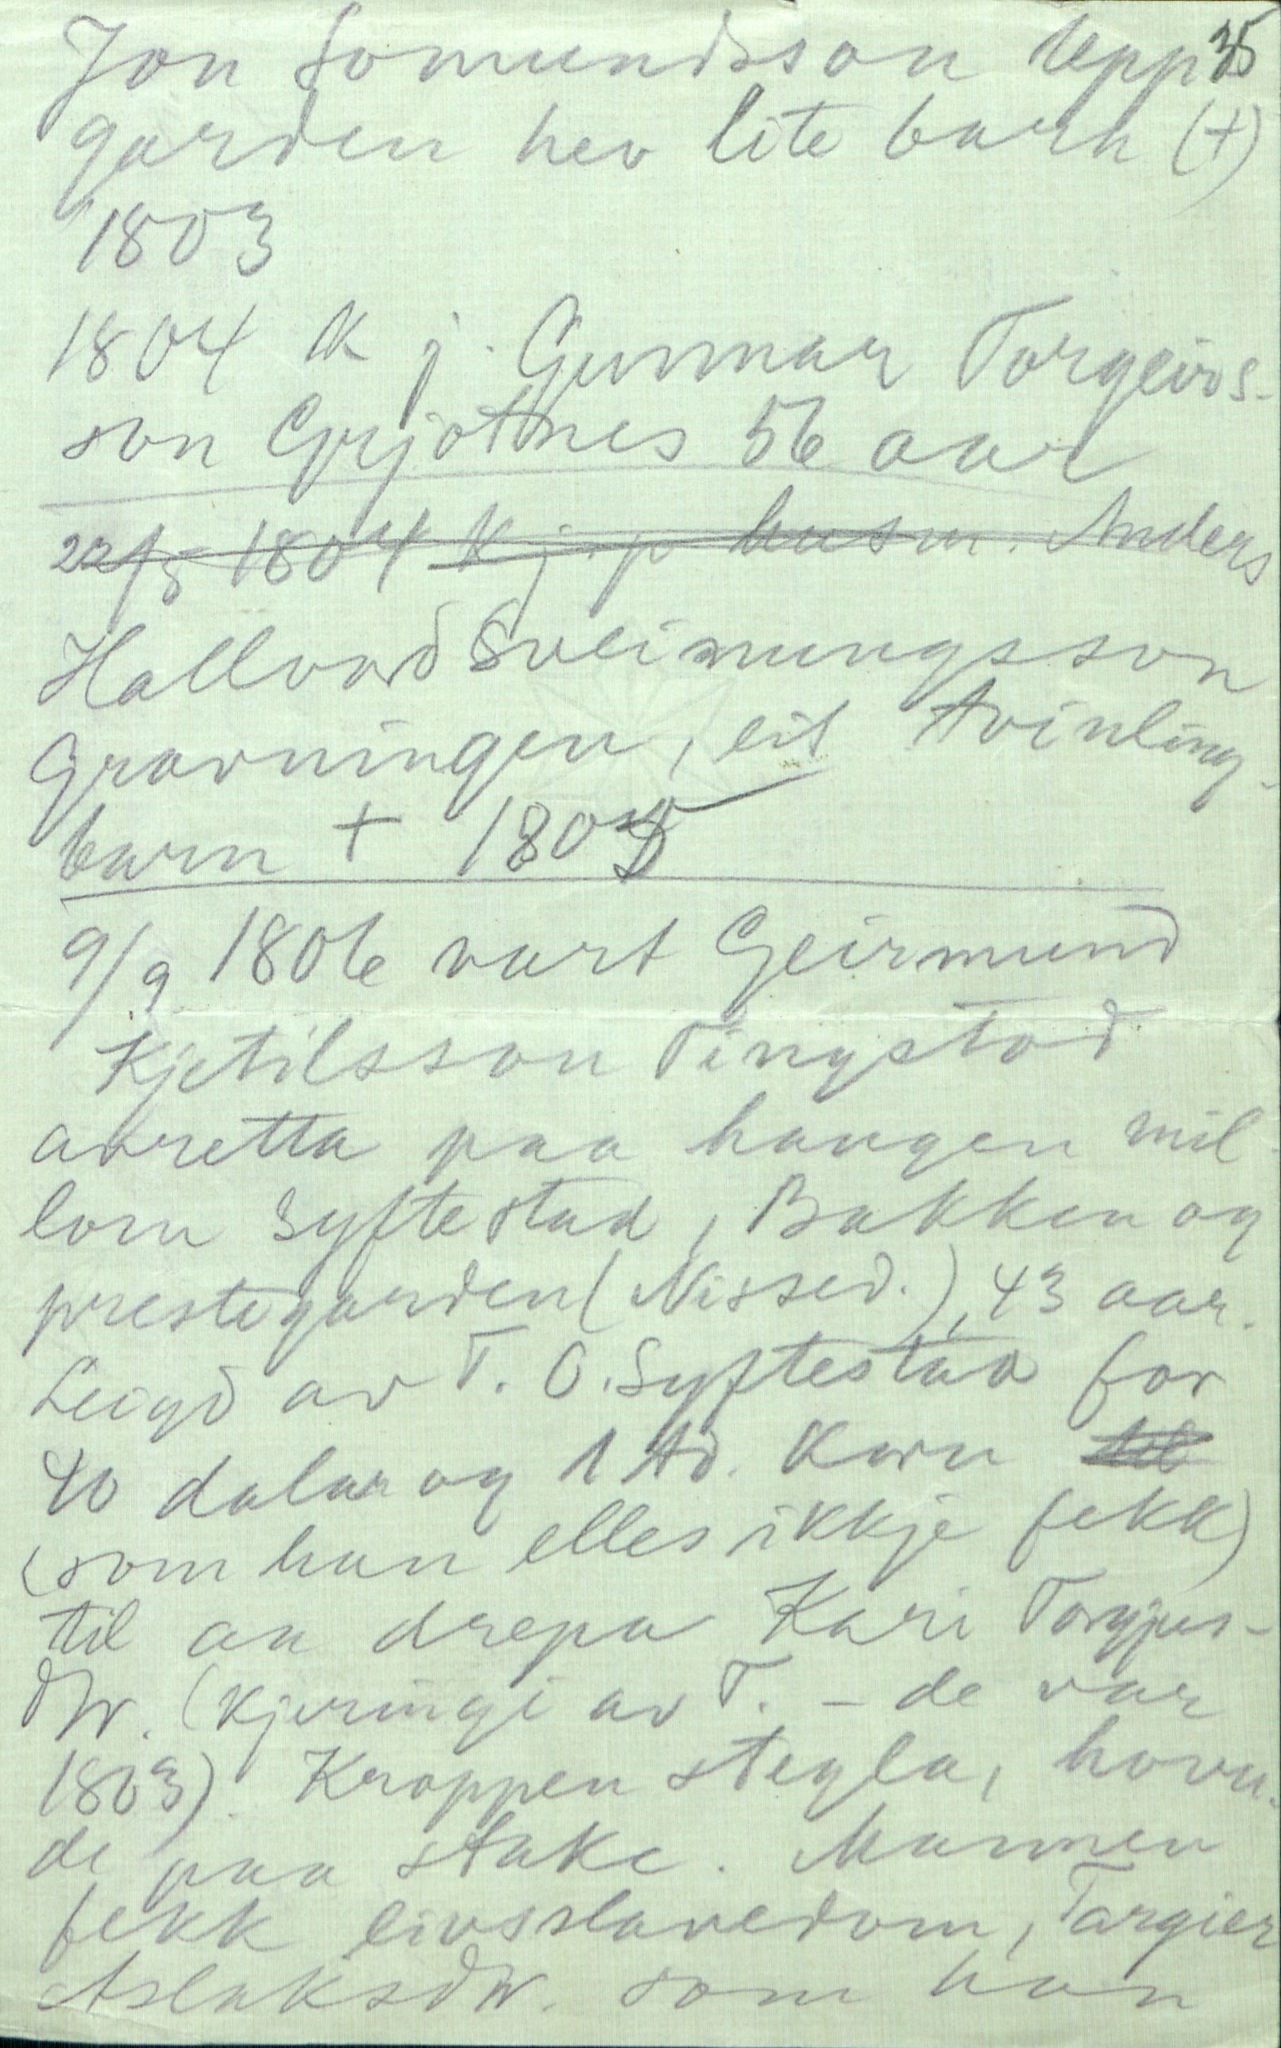 35
Jon Somundsson Upp
garden hev lite barn (+)
1803
1804 K j. Gunnar Torgeirs-
son Grjotnes 56 aar
22/5 1804 K j. p husm. Anders
Hallvard Sveinungsson
Gravningen, eit tvinling-
barn + 1805
9/9 1806 vart Geirmund
Kjetilsson Tingstad
avretta paa haugen mil-
lom Syftestad, Bakken og
prestegarden (Nissed.), 43 aar.
Leigd av T. O. Syftestad for
40 dalar og 1 td. korn til
(som han elles ikkje fekk)
til aa drepa Kari Torgjus-
dtr. (kjeringi av T. - de var
1803). Kroppen stegla, hovu-
de paa stake. Mannen
fekk livsslavedom, Targier
Aslaksdtr. som han